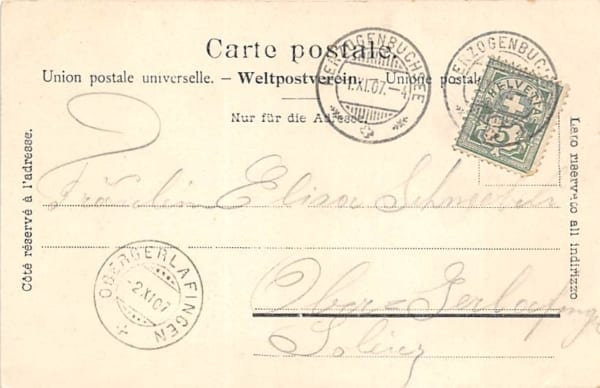 Carte postale.
Union postale universelle. — Weltpostverein. — Unione postale
Nur für die Adresse.
Côté réservé à l'adresse.
Lato riservato all indirizzo
HERZOGENBUCHSEE
1.XI.07.–4
HERZOGENBUCHSEE
HELVETIA
5
Fräulein Elisa
Ober=Gerlafingen
OBERGERLAFINGEN
-2.XI.07